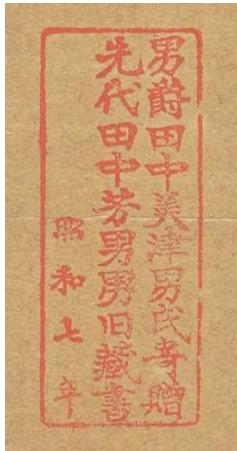 男爵田中美津男氏寄贈
先代田中芳男男爵旧蔵書
昭和七年